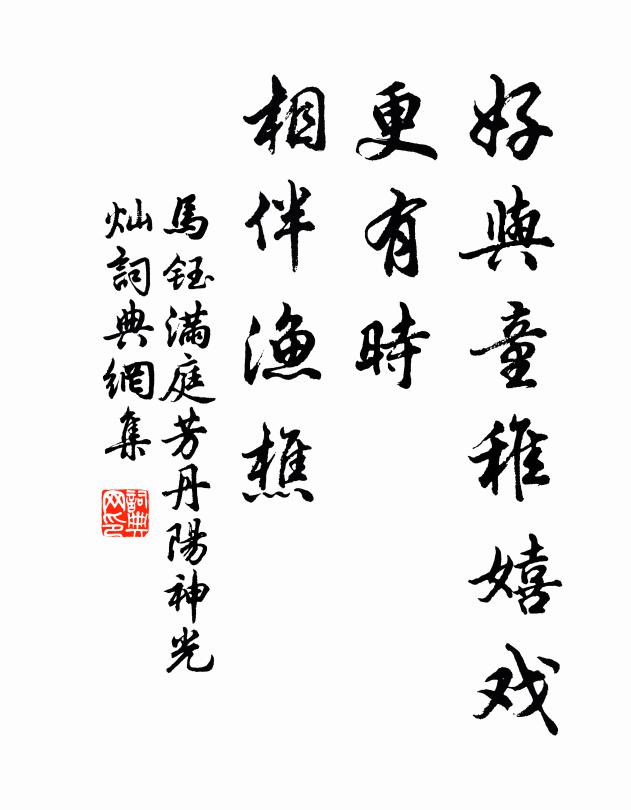 好與童稚嬉戏
更有時
相伴漁樵
馬鈺满庭芳丹陽神光
灿詞典網集
詞典网印